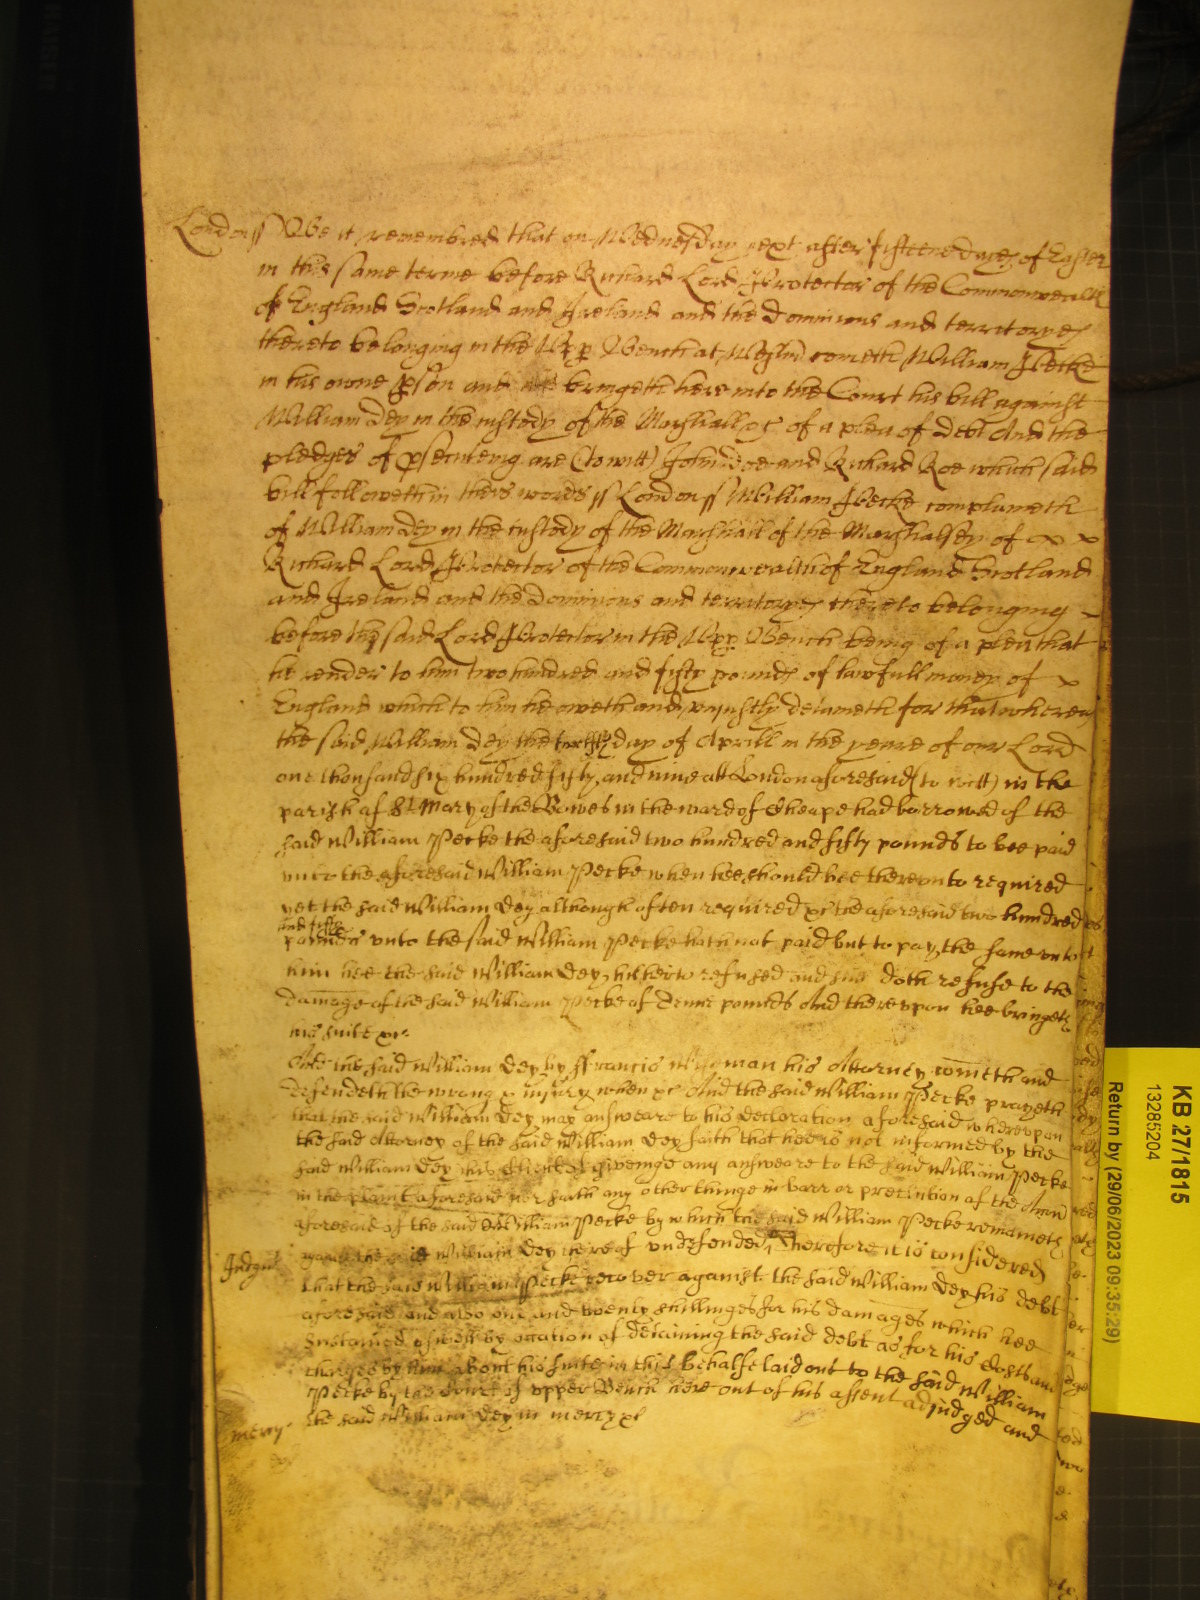 London ss Be it remembred that on Wednesday next after fifteene dayes of Easter
in this same terme before Richard Lord Protector of the Commonwealth
of England Scotland and Ireland and the Dominions and territoryes
thereto belonging in the Upp Bench at Westmr cometh William Pecke
in his owne pson and bringeth here into the Court his bill against
William Dey in the custody of the Marshall &c of a plea of Debt And the
pledges of psecuteing are (to witt) John Doe and Richard Roe which said
bill followeth in theis words ss London ss William Pecke complaineth
of William Dey in the custody of the Marshall of the Marshalsey of
Richard Lord Protector of the Commonwealth of England Scotland
and Ireland and the Dominions and territoryes thereto belonging
before the said Lord Protector in the Upp Bench being of a plea that
he render to him two hundred and fifty pounds of lawfull money of
England which to him he oweth and uniustly detaineth for that whereas
the said William Dey the day of Aprill in the yeare of our Lord
one thousand six hundred fifty and nine att London aforesaid (to witt) in the
parish of St Mary of the Bowes in the ward of Cheape had borrowed of the
said William Pecke the aforesaid two hundred and fifty pounds to bee paid
unto the aforesaid William Pecke when hee should bee thereunto required
yet the said William Dey although often required &c the aforesaid two hundred
and fifty
pounds unto the said William Pecke hath not paid but to pay the same unto
him hee the said William Dey hitherto refused and still doth refuse to the
damage of the said William Pecke of Tenne pounds And thereupon hee bringeth
his suite &c
And the said William Dey by ffrancis his Attorney cometh and
defendeth the wrong & iniury when &c And the said William Pecke prayeth
that the said William Dey may answeare to his declaration aforesaid whereupon
the said Attorney of the said William Dey saith that hee is not informed by the
said William Dey his Client of giveinge any answeare to the said William Pecke
in the plaint aforesaid nor saith any other thinge in barr or preclusion of the Accon
aforesaid of the said William Pecke by which the said William Pecke remaineth
against the said William Dey thereof undefended Therefore it is considered
Judgmt
that the said William Pecke recover against the said William Dey his debt
aforesaid and also one and twenty shillinges for his damages which hee
sustained aswell by occation of detaining the said debt as for his Costs and
charges by him about his suite in this behalfe laid out to the said William
Pecke by the Court of upper Bench here out of his assent adjudged and
the said William Dey in mercy &c
mercy
KB 27/1815
13285204
Return by (29/06/2023 09:35:29)